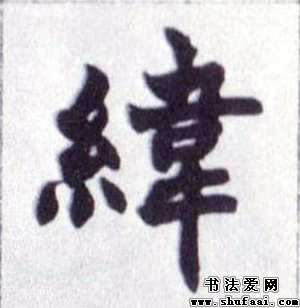 緯
书法爱网
www.shufaai.com